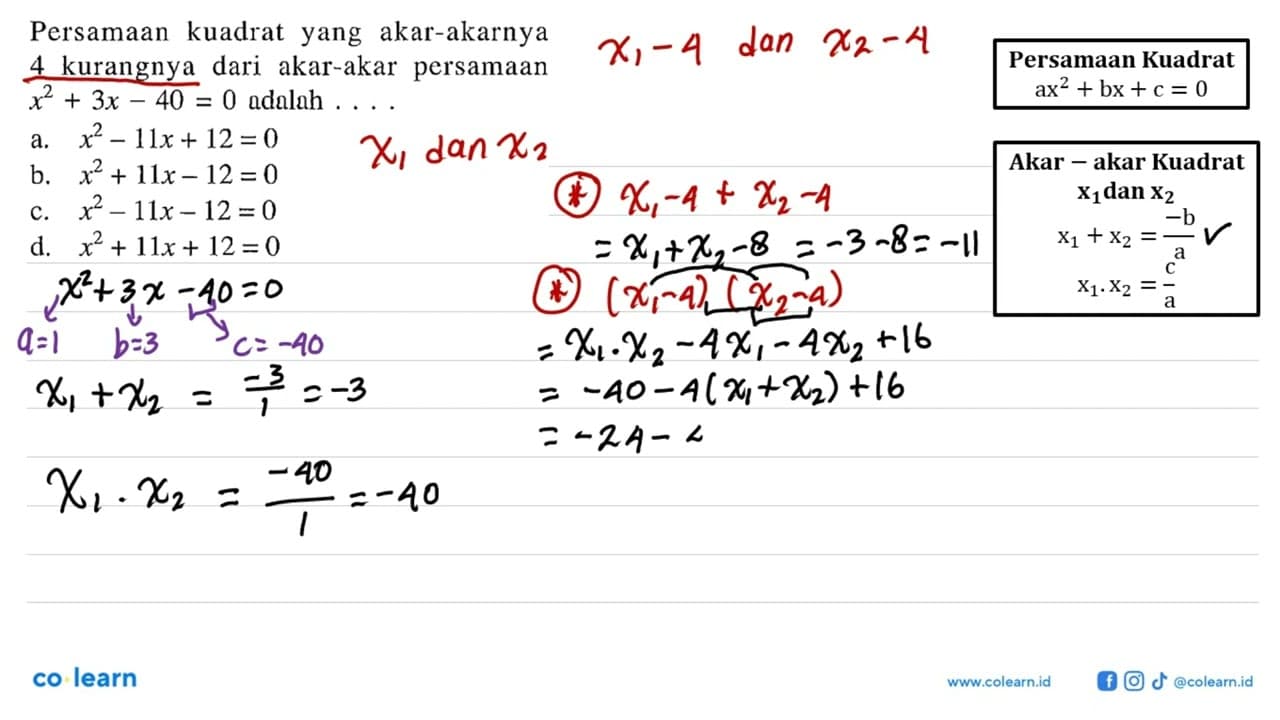 Persamaan kuadrat yang akar-akarnya
4 kurangnya dari akar-akar persamaan
x² + 3x − 40 = 0 adalah . . . .
a. x² − 11x + 12 = 0
b. x² + 11x − 12 = 0
c. x² − 11x − 12 = 0
d. x² + 11x + 12 = 0
x₁ − 4 dan x₂ − 4
x₁ dan x₂
Persamaan Kuadrat
ax² + bx + c = 0
Akar − akar Kuadrat
x₁dan x₂
x₁ + x₂ = −b/a ✓
x₁. x₂ = c/a
x² + 3x − 40 = 0
a=1 b=3 c= −40
x₁ + x₂ = −3/1 = −3
x₁ . x₂ = −40/1 = −40
* x₁−4 + x₂−4
= x₁ + x₂ − 8 = −3−8 = −11
* (x₁−4) (x₂−4)
= x₁.x₂ − 4x₁ − 4x₂ + 16
= −40 − 4(x₁+x₂) + 16
= −24 −
co learn
www.colearn.id
@colearn.id